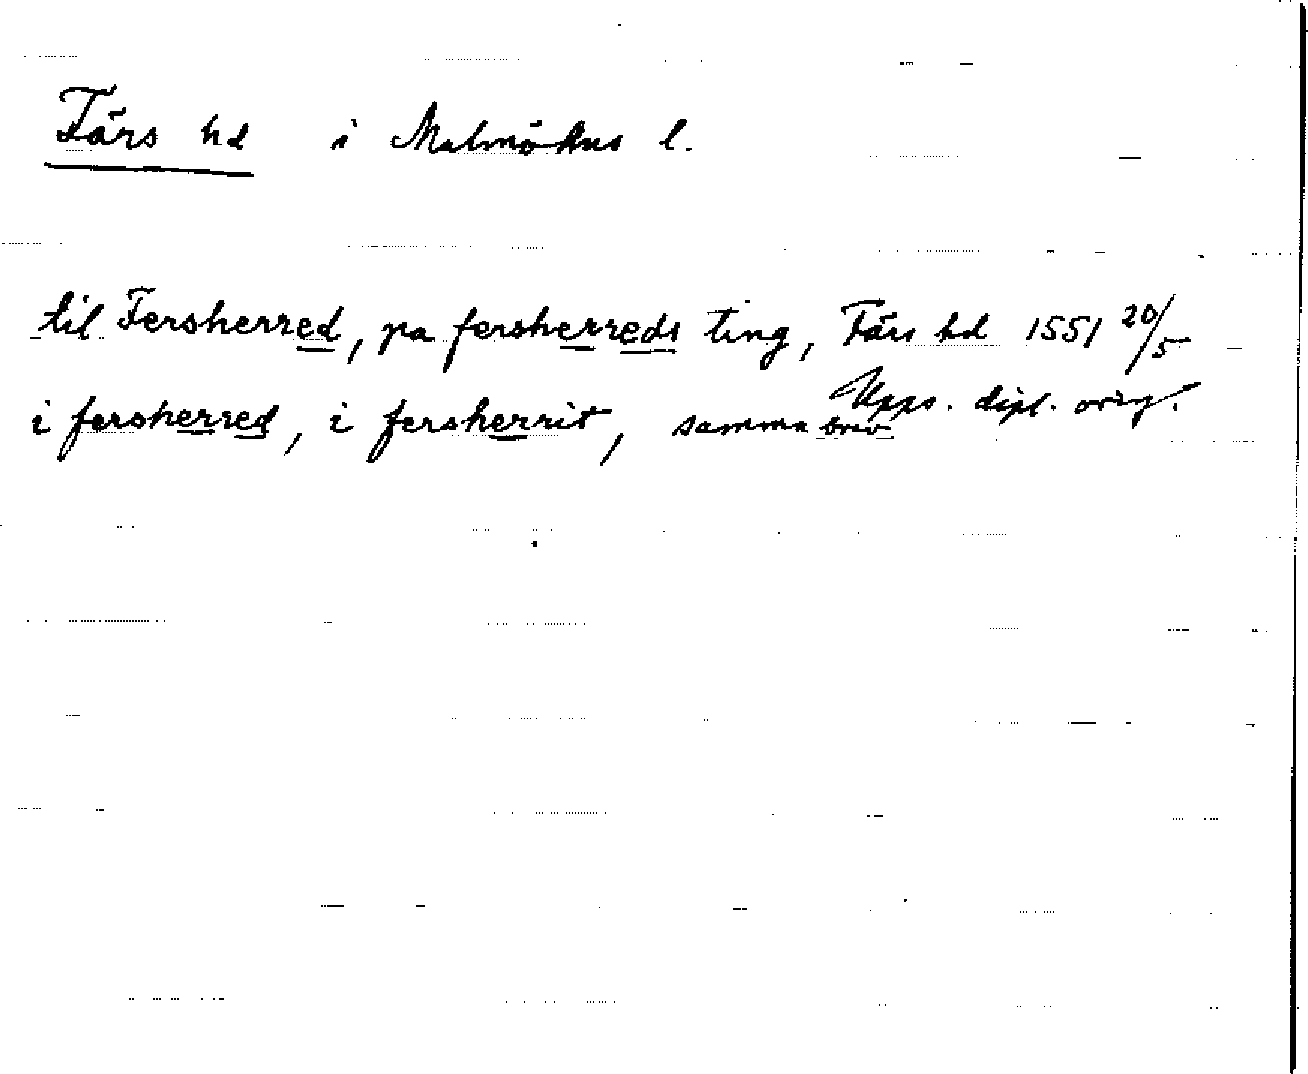 Färs hd i Malmöhus l.
til Fersherred, pa fersherreds ting, Färs hd 1551 20/5
Upps. dipl. orig.
i fersherred, i fersherrit, samma brev